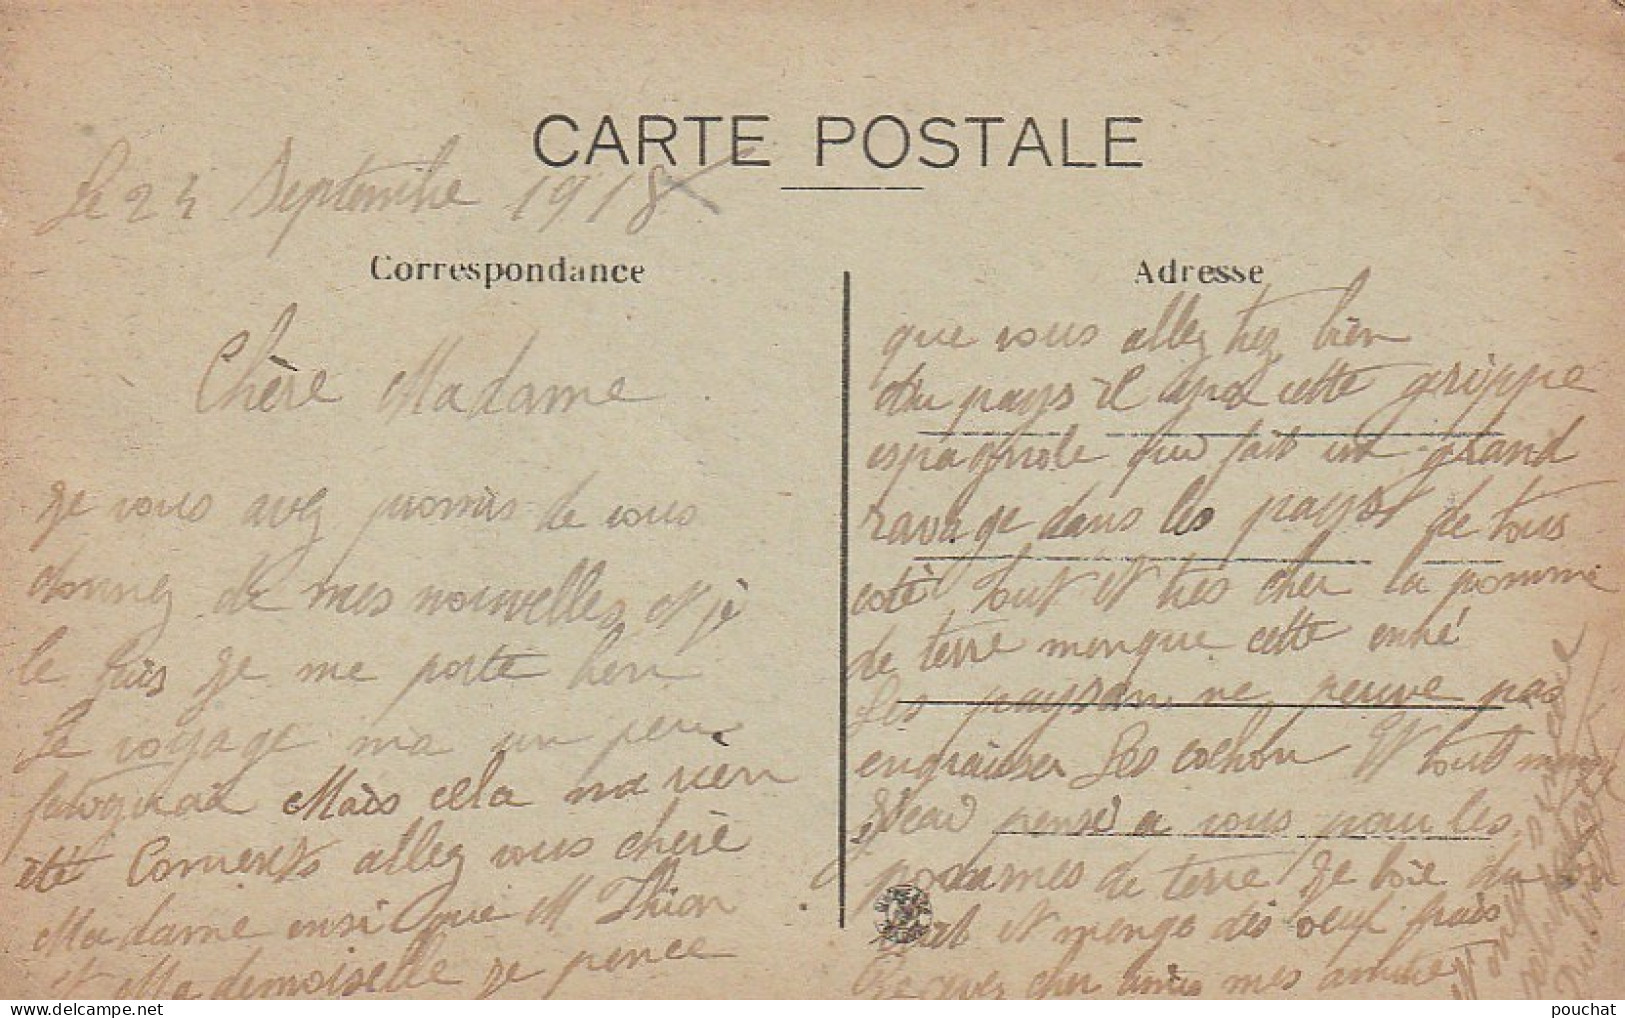 CARTE POSTALE
Le 24 Septembre 1918
Correspondance
Chère Madame
Je vous avez promis de vous
donnez de mes nouvelles et je
le fais je me porte bien
Le voyage ma un peux
Mais cela na rien
été Comment allez vous chère
Madame ensi que M Thion
et Mademoiselle je pence
Adresse
que vous allez trez bien
du pays il cette grippe
espagnole qui fait un grand
ravage dans les pays de tous
coté Tout et tres cher la pomme
de terre menque cette enné
Les paysan ne peuve pas
engraisser Les cochon Et tout
J'eai pensé a vous pour les
pommes de terre Je boie du
et menge des oeuf frais
cher amis mes amitie
pouchat